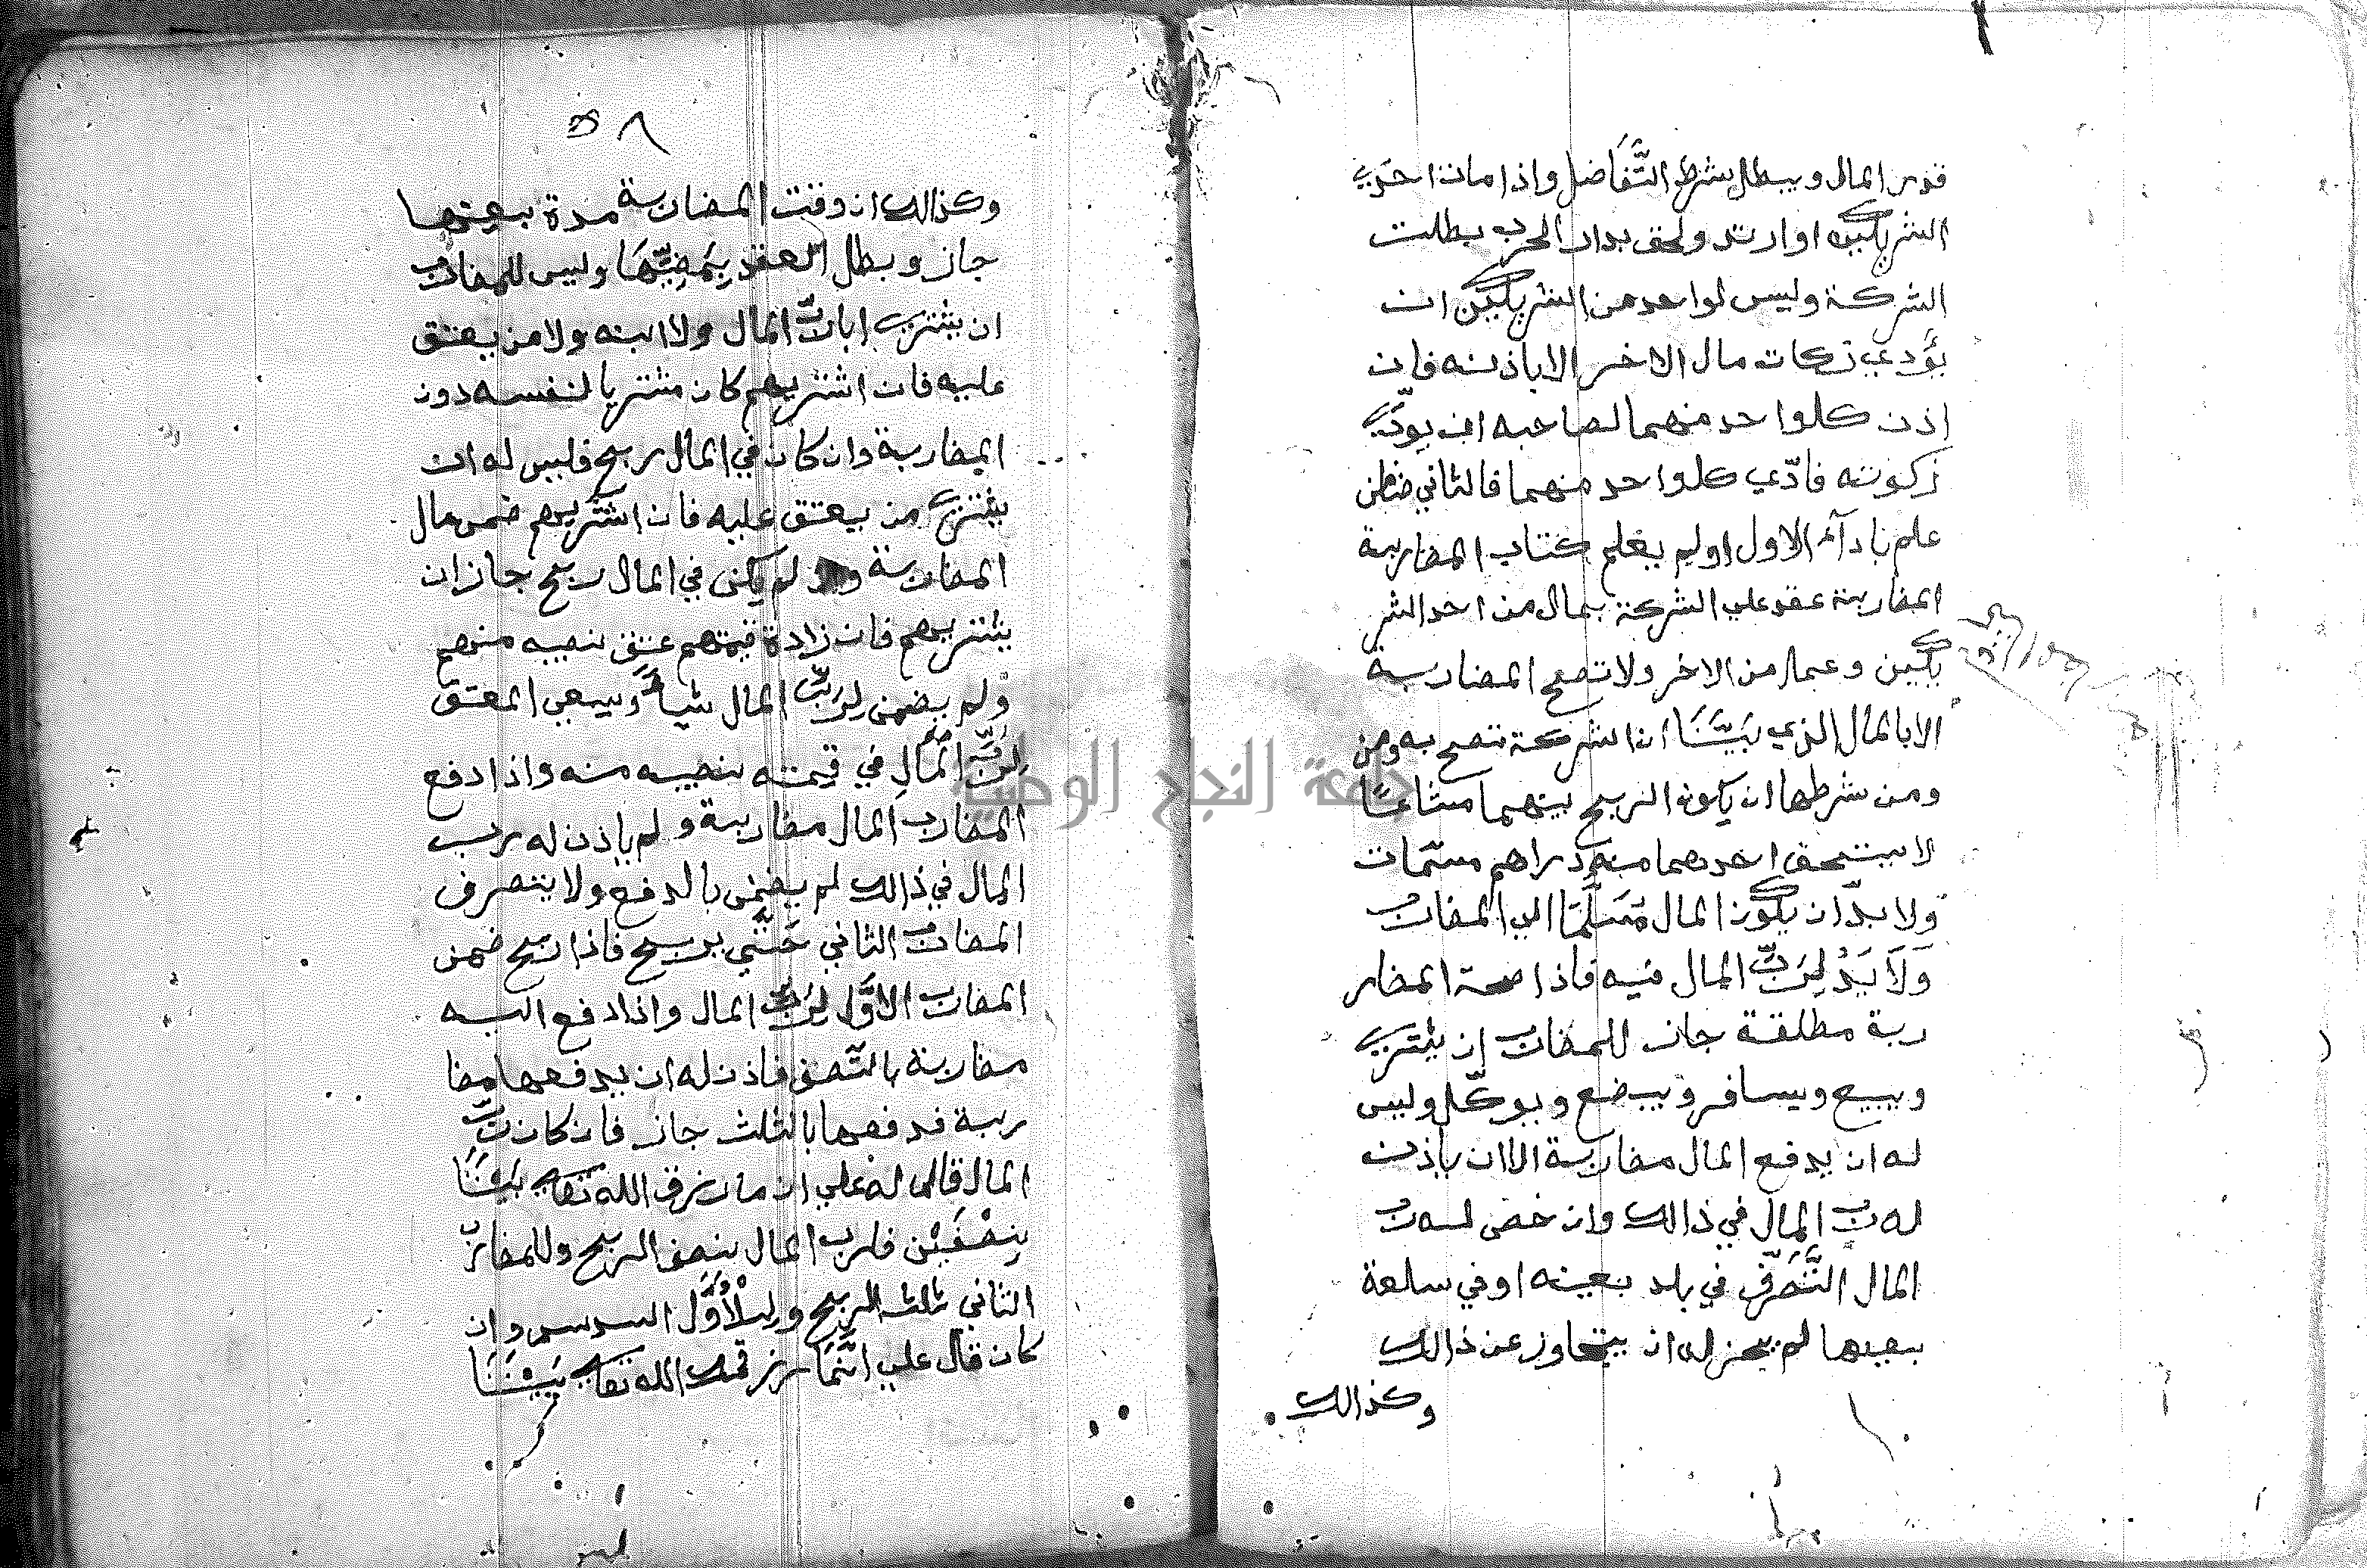 قدر المال ويبطل بشرط التَّفَاضل واذا مات احدي
الشريكين او ارتد ولحق بدار الحرب بطلت
الشركة وليس لواحد من الشريكين ان
يؤدي زكات مال الاخر الا باذنه فان
اذن كلواحد منهما لصاحبه ان يودّي
زكوته فادّي كلواحد منهما فالثاني ضامن
علم بادآء الاول اولم يعلم كتاب المضاربة
المضاربة عقد علي الشركة بمال من احد الشر
يكين وعمل من الاخر ولا تصح المضاربة
الا بالمال الذي بَيَّنَا ان الشركة تصح به ومن
ومن شرطها ان يكون الربح بينهما مشاعًا
لا يستحق احدهما منه دراهم مسمات
ولا بدّ ان يكون المال مُسَلَّمًا الي المضارب
وَلَا يَدْ لِرَبِّ المال فيه فاذا صحة المضار
ربة مطلقة جاز للمضارب ان يشتري
ويبيع ويسافر ويبضع ويوكّل وليس
له ان يدفع المال مضاربة الا ان ياذن
له رب المال في ذالك وان خص له رب
المال التَّصَرّف في بلد بعينه او في سلعة
بعينها لم يجز له ان يتجاوز عن ذالك
وكذالك
٥٨
وكذالك ان وقت المضاربة مدة بعينها
جاز وبطل العقد بِمَضِيِّهَا وليس للمضارب
ان يشتري اب ربّ المال ولا ابنه ولا من يعتق
عليه فان اشتريهم كان مشتريا لنفسه دون
المضاربة وان كان في المال ربح فليس له ان
يشتري من يعتق عليه فان اشتريهم ضمن مال
المضاربة وان لم يكن في المال ربح جاز ان
يشتريهم فان زادة قيمتهم عتق نصيبه منهم
ولم يضمن لربّ المال شيأً ويسعي المعتق
لِرَبِّ المَالِ في قيمته نصيبه منه واذا دفع
المضارب المال مضاربة ولم ياذن له رب
المال في ذالك لم يضمن بالدفع ولا يتصرف
المضارب الثاني حَتَّي يربح فاذا ربح ضمن
المضارب الاوَّل لِرَبِّ المال واذا دفع اليه
مضاربة بالنّصف فاذن له ان يدفعها مضا
ربة فدفعها بالثلث جاز فان كان ربّ
المال قال له علي ان مارزق الله تعالي بَيْنَنَا
نِصْفَيْن فلرب المال نصف الربح وللمضارب
الثاني ثلث الربح ولِلْأَوَّل السدس وان
كان قال علي انَّمَا رزقك الله تعالي بَيْنَنَا
جامعة النجاح الوطنية